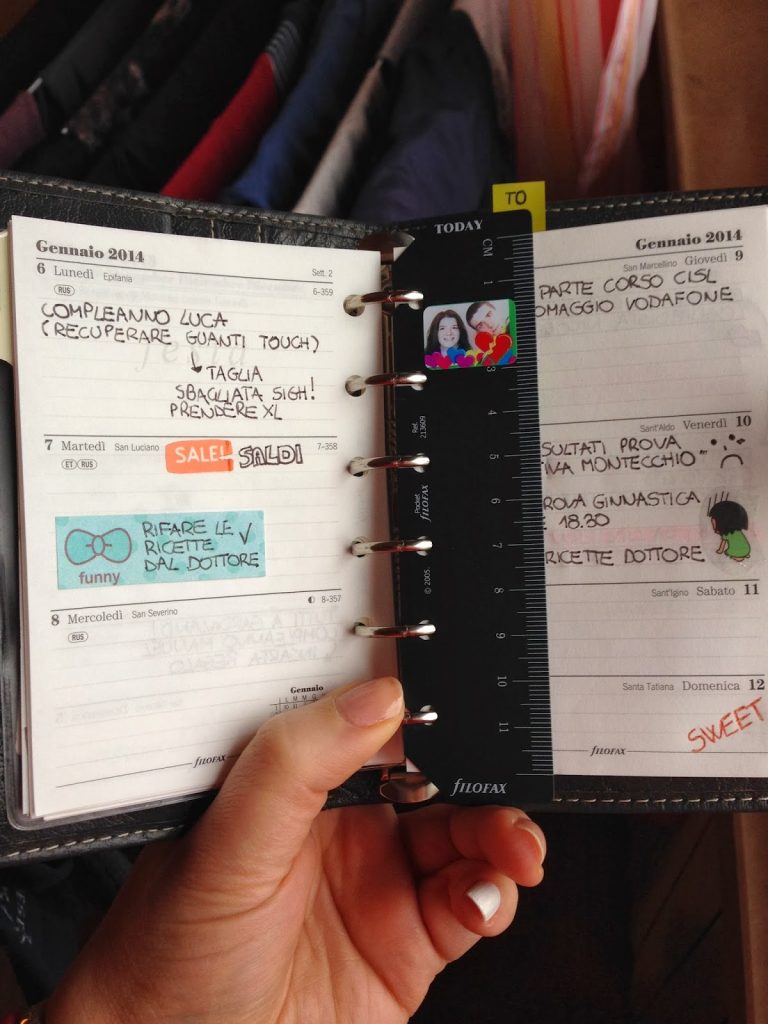 Gennaio 2014
6 Lunedì Epifania Sett. 2
RUS 6-359
COMPLEANNO LUCA
(RECUPERARE GUANTI TOUCH)
TAGLIA
SBAGLIATA SIGH!
PRENDERE XL
7 Martedì San Luciano SALE! SALDI 7-358
ET RUS
RIFARE LE
RICETTE
DAL DOTTORE
funny
8 Mercoledì San Severino 8-357
RUS
Gennaio
FILOFAX
TO
TODAY
CM
1
3
4
5
6
7
8
9
10
11
Ref. 213609
Pocket FILOFAX
© 2005.
FILOFAX
Gennaio 2014
San Marcellino Giovedì 9
PARTE CORSO CISL
OMAGGIO VODAFONE
Sant'Aldo Venerdì 10
SULTATI PROVA
IVA MONTECCHIO
ROVA GINNASTICA
E 18.30
RICETTE DOTTORE
Sant'Igino Sabato 11
Santa Tatiana Domenica 12
SWEET
FILOFAX